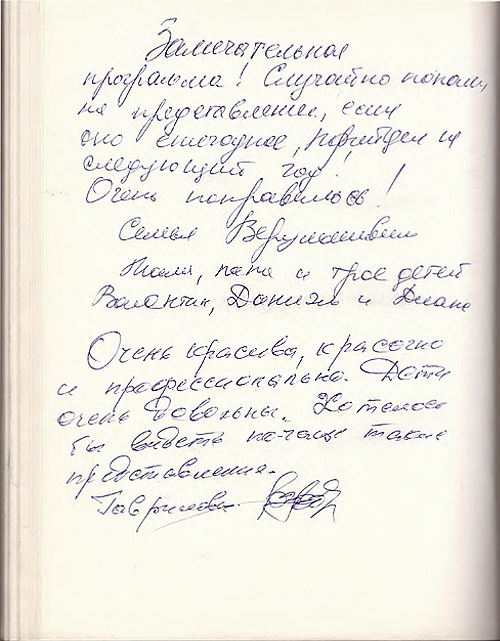 Замечательная
программа! Случайно попали
на представление, если
оно ежегодное, придём и
следующий год!
Очень понравилось!
Семья
Мама, папа и трое детей
Валентин, Даниэль и Диана
Очень красиво, красочно
и профессионально. Дети
очень довольны. Хотелось
бы видеть почаще такие
представления.
Гаврилова